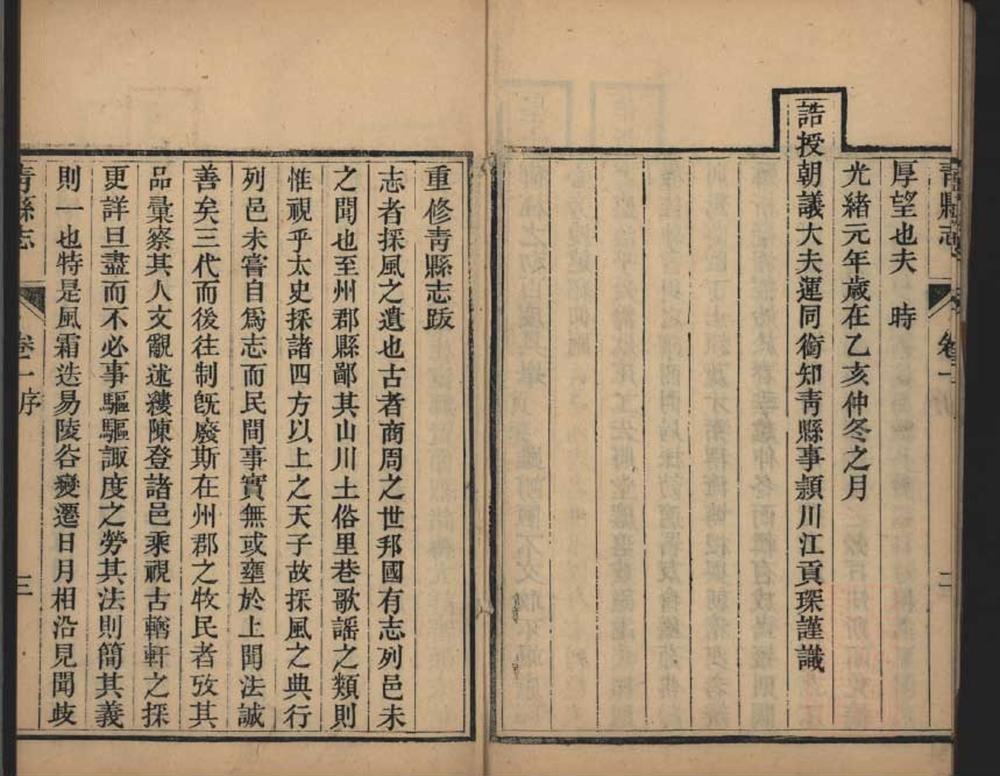 青縣志 卷一 二
厚望也夫 時
光緒元年歲在乙亥仲冬之月
誥授朝議大夫運同銜知青縣事潁川江貢琛謹識
重修青縣志跋
志者採風之遺也古者商周之世邦國有志列邑未
之聞也至州郡縣鄙其山川土俗里巷歌謠之類則
惟視乎太史採諸四方以上之天子故採風之典行
列邑未嘗自爲志而民間事實無或壅於上聞法誠
善矣三代而後往制旣廢斯在州郡之牧民者攷其
品彙察其人文覼述縷陳登諸邑乘視古輶軒之採
更詳且盡而不必事驅驅諏度之勞其法則簡其義
則一也特是風霜迭易陵谷變遷日月相沿見聞歧
青縣志 卷一序 三